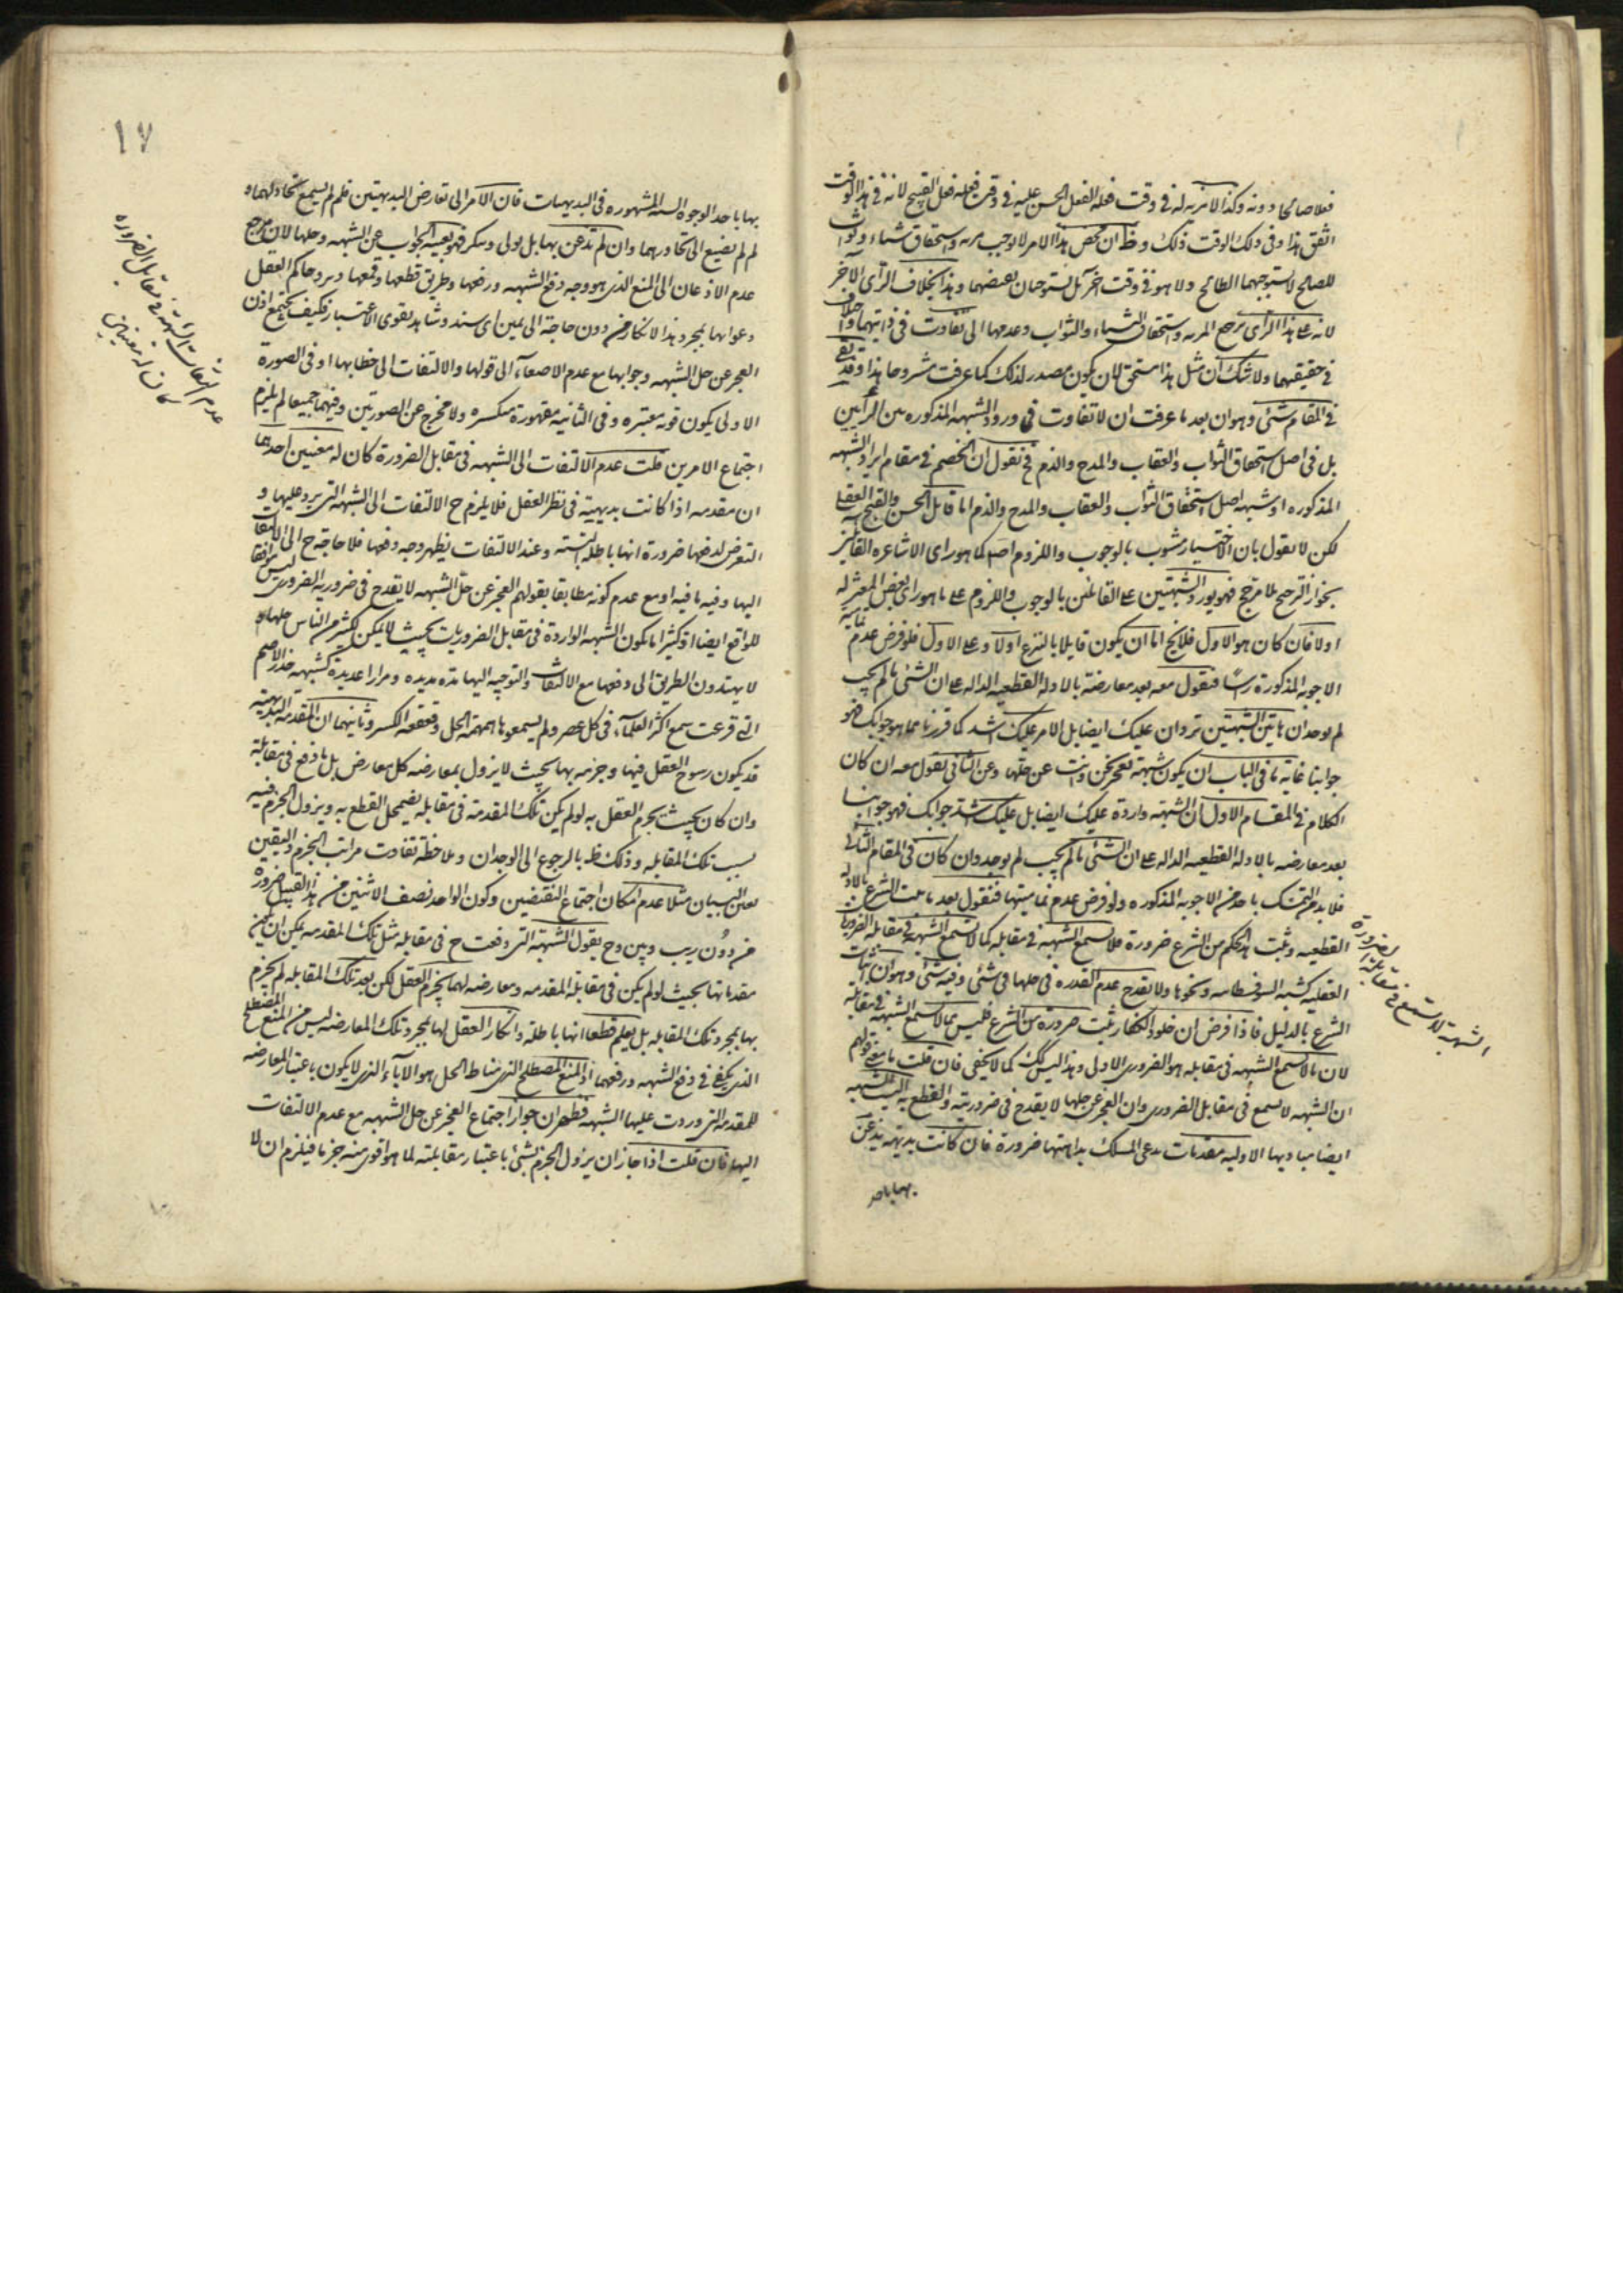 فعلا صالحا دونه وكذا لامزيه له فى وقت فعله الفعل الحسن عليه فى وقت فعله فعل القبيح لانه فى هذا الوقت
اتفق هذا وفى ذلك الوقت ذلك وظ ان محض هذا الامر لا يوجب مزيه واستحقاق ثناء وثواب
للصالح لا يستوجبهما الطالح ولا هو فى وقت آخر بل يستوجبان بعضهما وهذا بخلاف الرأى الآخر
لانه على هذا الرأى ترجع المزيه واستحقاق الثناء والثواب وعدمها الى تفاوت فى ذاتيهما واختلاف
فى حقيقتهما ولا شك ان مثل هذا مستحق لان يكون مصدر لذلك كما عرفت مشروحا هذا وقد بقى
فى المقام شئ وهو ان بعد ما عرفت ان لا تفاوت فى ورود الشبهه المذكوره بين الرأيين
بل فى اصل استحقاق الثواب والعقاب والمدح والذم فح نقول ان الخصم فى مقام ايراد الشبهه
المذكوره او شبهه اصل استحقاق الثواب والعقاب والمدح والذم اما قائل بالحسن والقبح العقلى
لكن لا يقول بان الاختيار مشوب بالوجوب واللزوم اصلا كما هو راى الاشاعره القائلين
بجواز الترجيح بلا مرجح فهو يورد الشبهتين على القائلين بالوجوب واللزوم على ما هو راى بعض المعتزله
اولا فان كان هو الاول فلا يخ اما ان يكون قايلا بالشرع اولا وعلى الاول فلو فرض عدم تماميه
الاجوبه المذكورة رأسا فنقول معه بعد معارضته بالادله القطعيه الداله على ان الشئ ما لم يجب
لم يوجد ان هاتين الشبهتين تردان عليك ايضا بل الامر عليك اشد كما قررنا مما هو جوابك فهو
جوابنا غاية ما فى الباب ان يكون شبهة نعجز نحن وانت عن حلها وعن الثانى نقول معه ان كان
الكلام فى المقام الاول ان الشبهة واردة عليك ايضا بل عليك اشد جوابك فهو جوابنا
بعد معارضه بالادله القطعيه الداله على ان الشئ ما لم يجب لم يوجد وان كان فى المقام الثانى
فلا بد من التمسك باحد من الاجوبه المذكوره ولو فرض عدم تماميتها فنقول بعد ما ثبت الشرع بالادله
القطعيه وثبت هذا الحكم من الشرع ضرورة فلا تسمع الشبهه فى مقابله كما لا تسمع الشبهه فى مقابله الضروريات
العقليه كشبه السوفسطائيه ونحوها ولا يقدح عدم القدره فى حلها فى شئ وفيه شئ وهو ان اثبات
الشرع بالدليل فاذا فرض ان خلود الكفار ثبت ضرورة من الشرع فليس مما لا تسمع الشبهه فى مقابلته
لان ما لا تسمع الشبهه فى مقابله هو الضرورى الاولى وهذا ليس كك كما لا يخفى فان قلت ما معنى قولهم
ان الشبهه لا تسمع فى مقابل الضرورى وان العجز عن حلها لا يقدح فى ضروريته والقطع به اليست الشبهه
ايضا مباديها الاوليه مقدمات يدعى المسلك بداهتها ضرورة فان كانت بديهيه يذعن
بها باحد
الشبهة لا تسمع فى مقابلة الضرورة
١٧
بها باحد الوجوه السته المشهوره فى البديهيات فان الامر الى تعارض البديهتين فلم لم يسمع تحاولهما و
لم لم يضيع الى تحاورهما وان لم تذعن بها بل يولى وينكر فهو بعينه الجواب عن الشبهه وحلها لان مرجع
عدم الاذعان الى المنع الذى هو وجه دفع الشبهه ورفعها وطريق قطعها وقمعها ويرد حاكم العقل
دعواها بمجرد هذا الانكار من دون حاجة الى يمين اى سند وشاهد يقوى الاعتبار فكيف يجتمع اذن
العجز عن حل الشبهه وجوابها مع عدم الاصغاء الى قولها والالتفات الى خطابها او فى الصورة
الاولى يكون قويه معتبره وفى الثانيه مقهورة منكسره ولا مخرج عن الصورتين وفيهما جميعا لم يلزم
اجتماع الامرين قلت عدم الالتفات الى الشبهه فى مقابل الضرورة كان له معنيين احدهما
ان مقدمه اذا كانت بديهية فى نظر العقل فلا يلزم ح الالتفات الى الشبهه التى يرد عليها و
التعرض لدفعها ضرورة انها باطلة البتته وعند الالتفات يظهر وجه دفعها فلا حاجة ح الى الالتفات
اليها وفيه ما فيه اذ مع عدم كونه مطابقا بقولهم العجز عن حل الشبهه لا يقدح فى ضروريه الضرورى ليس موافقا
للواقع ايضا اذ كثيرا ما تكون الشبهه الواردة فى مقابل الضروريات بحيث لا يمكن لكثير من الناس حلها و
لا يهتدون الطريق الى دفعها مع الالتفات والتوجيه اليها مدة مديده ومرارا عديدة كشبهه جذر الاصم
التى قرعت سمع اكثر العلماء فى كل عصر ولم يسمعوها همهمة الحل وقعقعه الكسر وثانيهما ان المقدمه البديهيه
قد يكون رسوخ العقل فيها وجزمه بها بحيث لا يزول بمعارضه كل معارض بل ما وقع فى مقابلته
وان كان بحيث يجزم العقل به لو لم يكن تلك المقدمة فى مقابله يضمحل القطع به ويزول الجزم فيه
بسبب تلك المقابله وذلك ظ بالرجوع الى الوجدان وملاحظة تفاوت مراتب الجزم واليقين
مثلا عدم امكان اجتماع النقيضين وكون الواحد نصف الاثنين من هذا القبيل ضرورة
من دون ريب ومين وح يقول الشبهة التى وقعت ح فى مقابله مثل تلك المقدمه يمكن ان يكون
مقدماتها بحيث لو لم يكن فى مقابلة المقدمه ومعارضه لهما يجزم العقل لكن بعد تلك المقابله لم يجزم
بها بمجرد تلك المقابله بل يعلم قطعا انها باطلة وانكار العقل لها بمجرد تلك المعارضه ليس من المنع المصطلح
الذى يكفى فى دفع الشبهه ورفعها اذ المنع المصطلح الذى مناط الحل هو الآباء الذى لا يكون باعتبار المعارضه
للمقدمه التى وردت عليها الشبهه فظهر ان جواز اجتماع العجز عن حل الشبهه مع عدم الالتفات
اليها فان قلت اذا جاز ان يزول الجزم بشئ باعتبار مقابلته لما هو اقوى منه جزما فيلزم ان لا
عدم التفات الشبهة فى مقابل الضروره
كان له معنيين